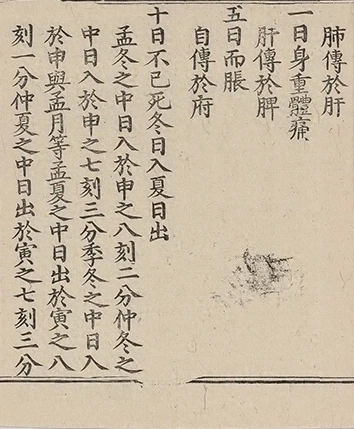 肺傳於肝
一日身重體痛
肝傳於脾
五日而脹
自傳於府
十日不已死冬日入夏日出
孟冬之中日入於申之八刻二分仲冬之
中日入於申之七刻三分季冬之中日入
於申與孟月等孟夏之中日出於寅之八
刻一分仲夏之中日出於寅之七刻三分